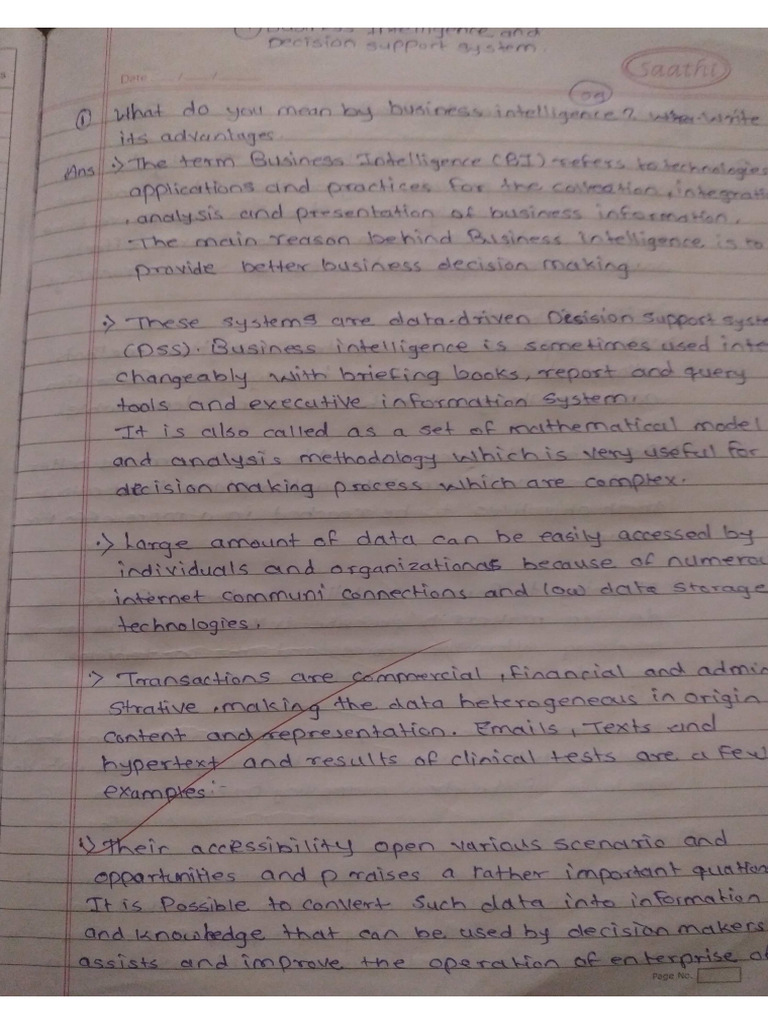 Business Intelligence and
Decision support system.
Saathi
Date / /
① What do you mean by business intelligence? Write
its advantages.
Ans :> The term Business Intelligence (BI) refers to technologies
applications and practices for the collection, integrati
, analysis and presentation of business information.
The main reason behind Business intelligence is to
provide better business decision making.
:> These systems are data-driven Decision support syste
(DSS). Business intelligence is sometimes used inte
changeably with briefing books, report and query
tools and executive information system.
It is also called as a set of mathematical model
and analysis methodology which is very useful for
decision making process which are complex.
:> Large amount of data can be easily accessed by
individuals and organizations because of numero
internet communi connections and low data storage
technologies.
:> Transactions are commercial, financial and admin
strative, making the data heterogeneous in origin
content and representation. Emails, Texts and
hypertext and results of clinical tests are a few
examples:-
:> Their accessibility open various scenario and
opportunities and p raises a rather important quation
It is Possible to convert such data into information
and knowledge that can be used by decision makers
assists and improve the operation of enterprise of
Page No.